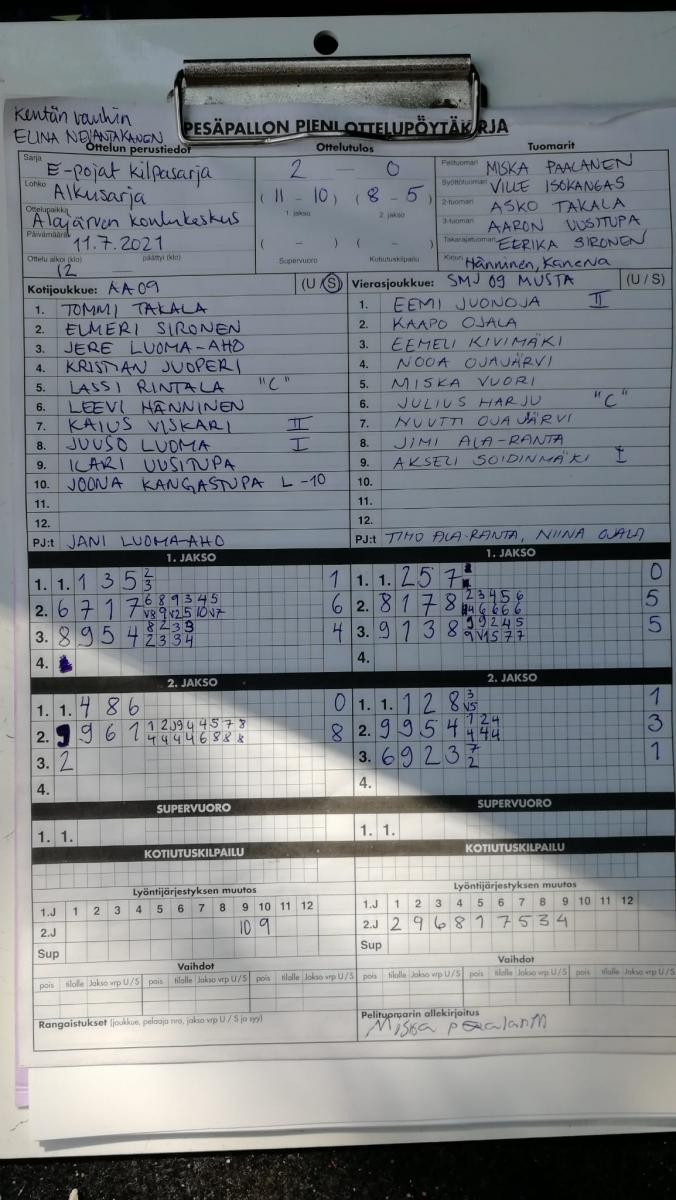 Kentän vanhin
ELINA NEVANTAKANEN
PESÄPALLON PIENI OTTELUPÖYTÄKIRJA
Ottelun perustiedot
Sarja E-pojat kilpasarja
Lohko Alkusarja
Ottelupaikka Alajärven koulukeskus
Päivämäärä 11.7.2021
Ottelu alkoi (klo) 12 päättyi (klo)
Ottelutulos
2 — 0
(11 - 10) (8 - 5)
1. jakso 2. jakso
( - ) ( - )
Supervuoro Kotiutuskilpailu
Tuomarit
Pelituomari MISKA PAALANEN
Syöttötuomari VILLE ISOKANGAS
2-tuomari ASKO TAKALA
3-tuomari AARON UUSITUPA
Takarajatuomari EERIKA SIRONEN
Kirjuri Hänninen, Kanerva
Kotijoukkue: AA09 (U/S)
1. TOMMI TAKALA
2. ELMERI SIRONEN
3. JERE LUOMA-AHO
4. KRISTIAN JUOPERI
5. LASSI RINTALA "C"
6. LEEVI HÄNNINEN
7. KAIUS VISKARI II
8. JUUSO LUOMA I
9. ILARI UUSITUPA
10. JOONA KANGASTUPA L-10
11.
12.
PJ:t JANI LUOMA-AHO
Vierasjoukkue: SMJ 09 MUSTA (U/S)
1. EEMI JUONOJA II
2. KAAPO OJALA
3. EEMELI KIVIMÄKI
4. NOOA OJAJÄRVI
5. MISKA VUORI
6. JULIUS HARJU "C"
7. NUUTTI OJAJÄRVI
8. JIMI ALA-RANTA
9. AKSELI SOIDINMÄKI I
10.
11.
12.
PJ:t TIMO ALA-RANTA, NIINA OJALA
1. JAKSO
1. 1. 1 3 5 2 1
3
2. 6 7 1 7 6 8 9 3 4 5 6
V8 9 V2 5 10 V7
3. 8 9 5 4 8 2 3 9 4
2 3 3 4
4.
1. JAKSO
1. 1. 2 5 7 0
2. 8 1 7 8 2 3 4 5 6 5
6 6 6 6
3. 9 1 3 8 9 9 2 4 5 5
9 V1 5 7 7
4.
2. JAKSO
1. 1. 4 8 6 0
2. 9 6 1 1 2 9 4 4 5 7 8 8
4 4 4 4 6 8 8 8
3. 2
4.
2. JAKSO
1. 1. 1 2 8 3 1
V5
2. 9 9 5 4 1 2 4 3
4 4 4
3. 6 9 2 3 7 1
2
4.
SUPERVUORO
1. 1.
SUPERVUORO
1. 1.
KOTIUTUSKILPAILU
KOTIUTUSKILPAILU
Lyöntijärjestyksen muutos
1.J 1 2 3 4 5 6 7 8 9 10 11 12
2.J 10 9
Sup
Lyöntijärjestyksen muutos
1.J 1 2 3 4 5 6 7 8 9 10 11 12
2.J 2 9 6 8 1 7 5 3 4
Sup
Vaihdot
pois tilalle Jakso vrp U/S pois tilalle Jakso vrp U/S pois tilalle Jakso vrp U/S
Vaihdot
pois tilalle Jakso vrp U/S pois tilalle Jakso vrp U/S pois tilalle Jakso vrp U/S
Rangaistukset (joukkue, pelaaja nro, jakso vrp U / S ja syy)
Pelituomarin allekirjoitus
Miska